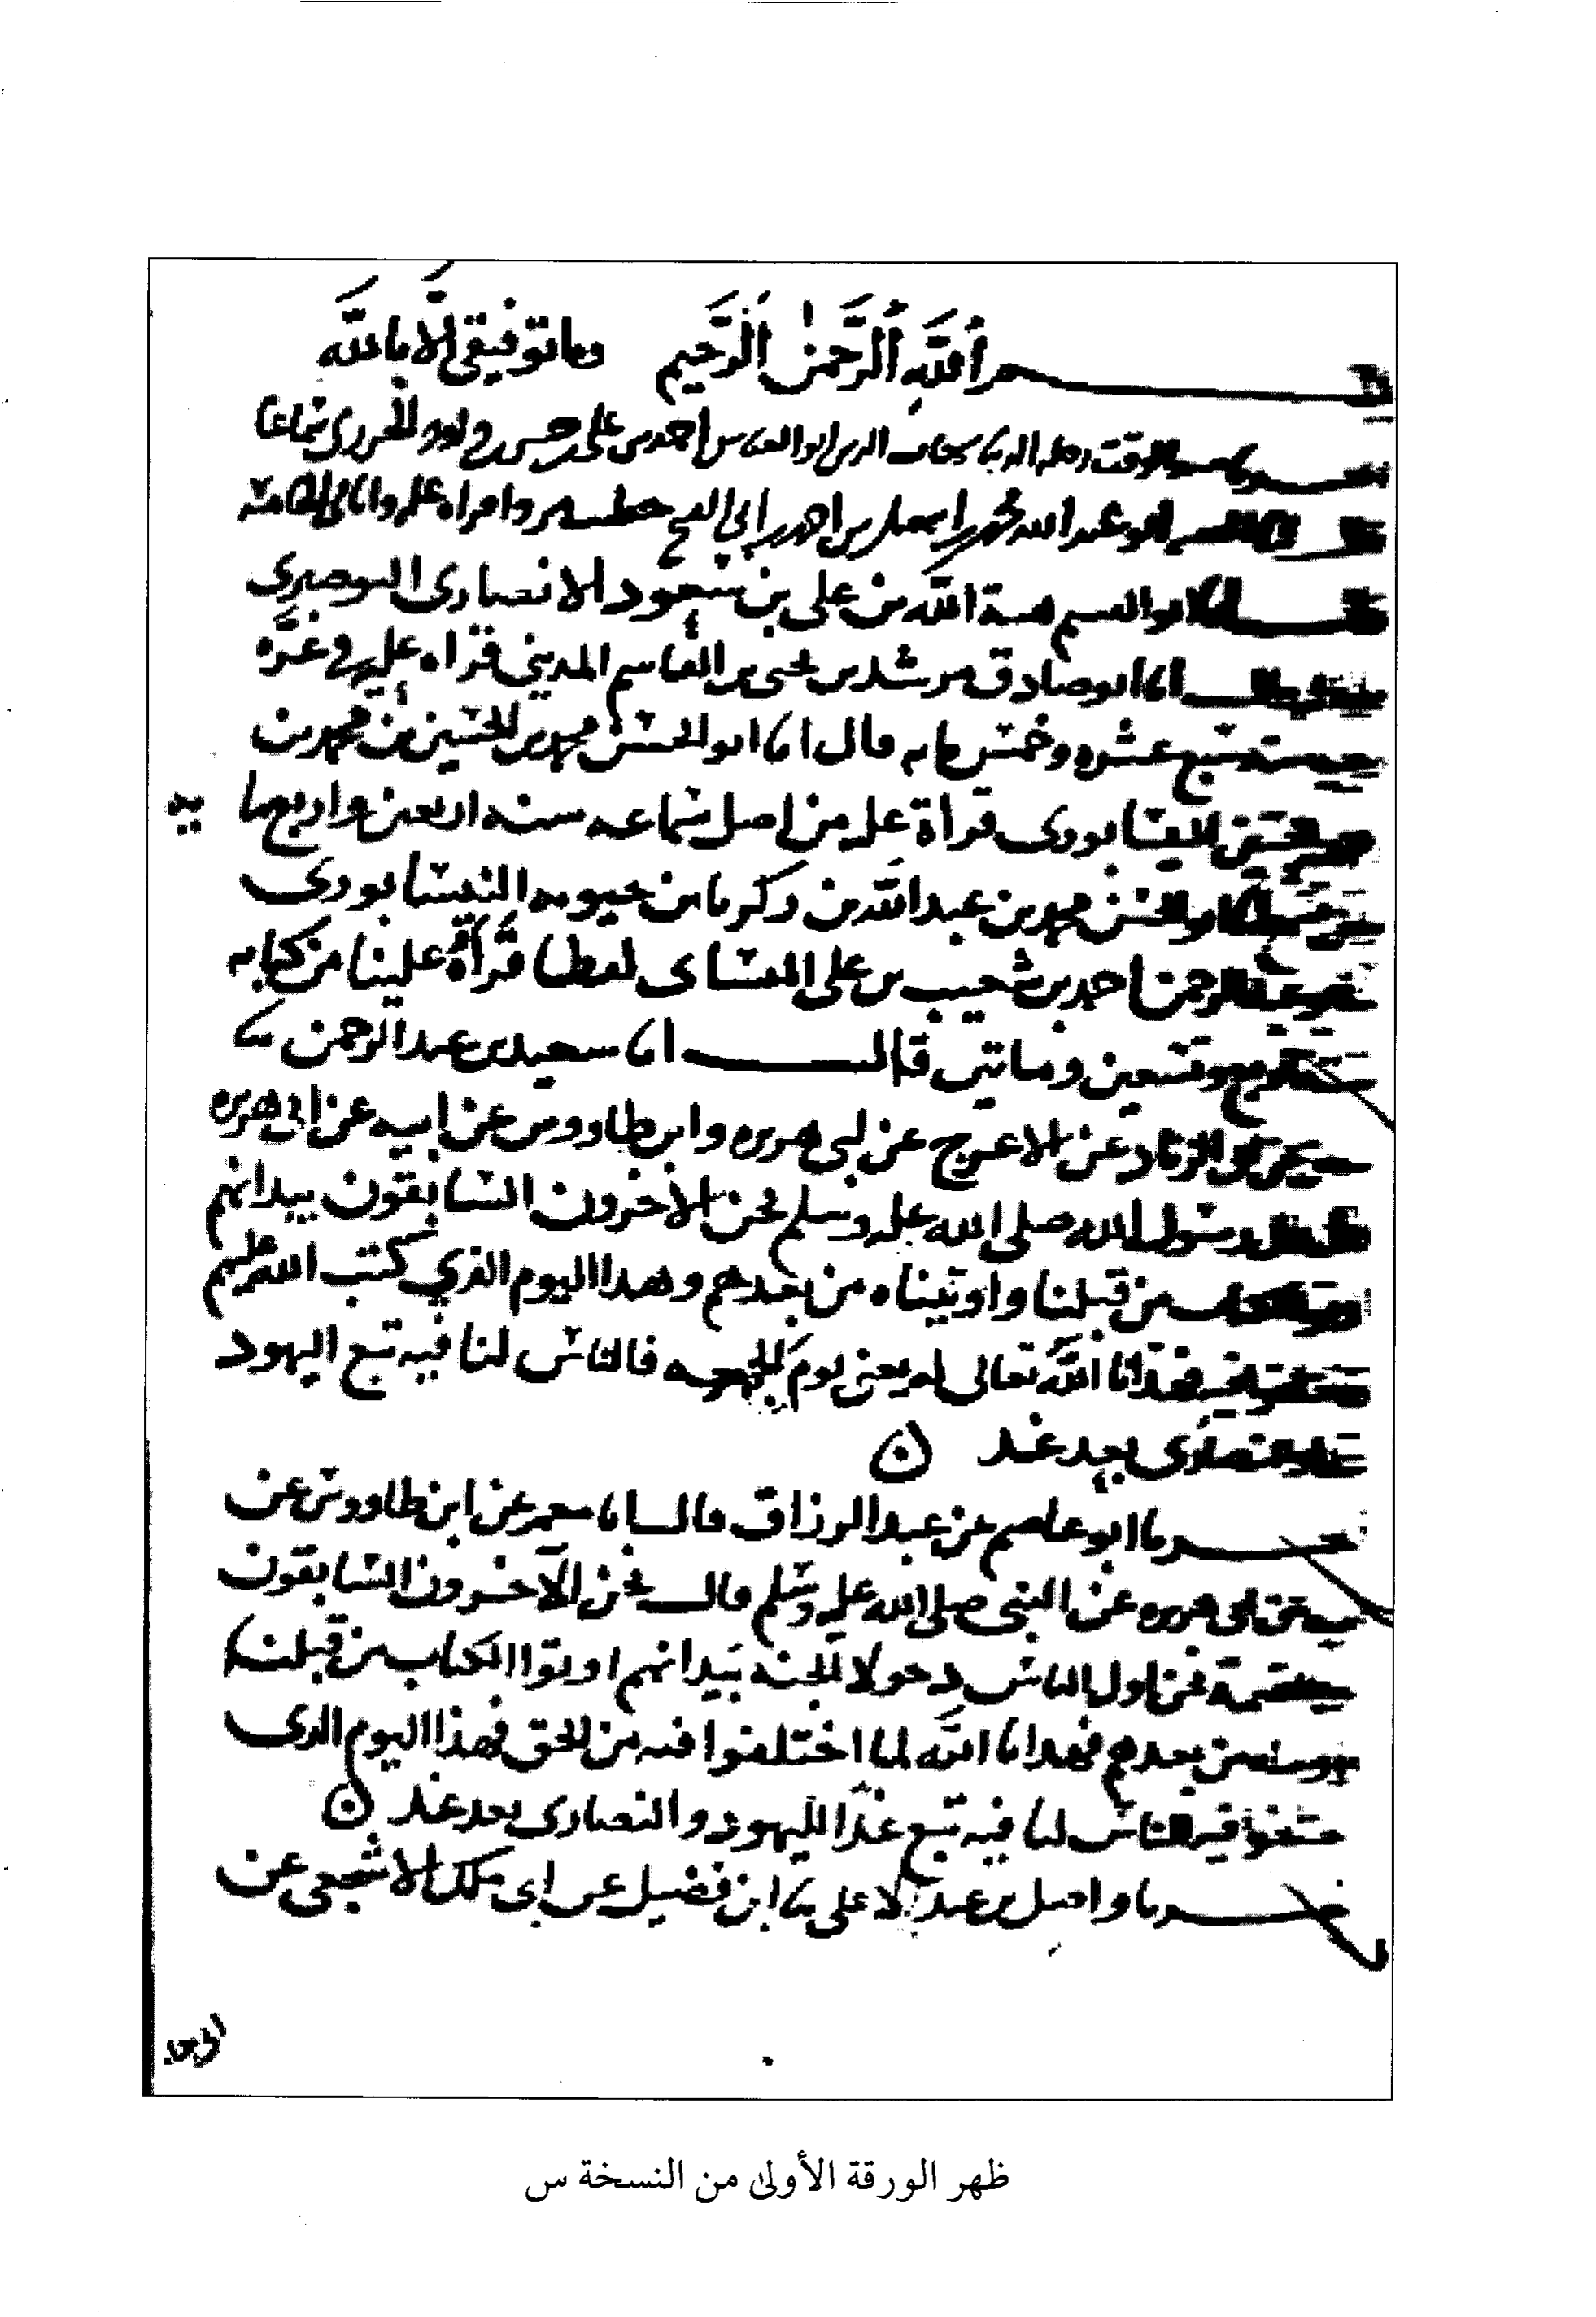 الله الرحمن الرحيم وما توفيقي الا بالله
الوقت احمد بن على سماعا
ابو عبد الله محمد بن اسمعيل بن احمد بن ابي الفتح خطيب مردا قراه عليه وانا في الخامسة
ابو القسم هبة الله بن على بن مسعود الانصارى البوصيرى
انا ابو صادق مرشد بن يحيى بن القاسم المديني قراه عليه في غرة
سنة سبع عشره وخمس مايه قال انا ابو الحسن محمد بن الحسين بن محمد بن
النيسابورى قراة عليه من اصل سماعه سنه اربعين واربع ما يه
ابو الحسن محمد بن عبد الله بن زكريا بن حيويه النيسابورى
عبد الرحمن احمد بن شعيب بن على النسائى لفظا قراة علينا من كتابه
وتسعين وماتين قال انا سعيد بن عبد الرحمن نا
عن ابى الزناد عن الاعرج عن ابى هريره وابن طاووس عن ابيه عن ابى هريره
قال قال رسول الله صلى الله عليه وسلم نحن الاخرون السابقون بيد انهم
اوتوا الكتاب من قبلنا واوتيناه من بعدهم وهذا اليوم الذي كتب الله عليهم
فاختلفوا فيه فهدانا الله تعالى له يعنى يوم الجمعه فالناس لنا فيه تبع اليهود
غدا والنصارى بعد غد
ابو عاصم عن عبد الرزاق قال انا معمر عن ابن طاووس عن
ابيه عن ابى هريره عن النبى صلى الله عليه وسلم قال نحن الآخرون السابقون
يوم القيمة نحن اول الناس دخولا الجنه بيد انهم اوتوا الكتاب من قبلنا
من بعدهم فهدانا الله لما اختلفوا فيه من الحق فهذا اليوم الذى
اختلفوا فيه الناس لنا فيه تبع غدا لليهود والنصارى بعد غد
واصل بن عبد الاعلى نا ابن فضيل عن ابى ملك الاشجعى عن
ظهر الورقة الأولى من النسخة س